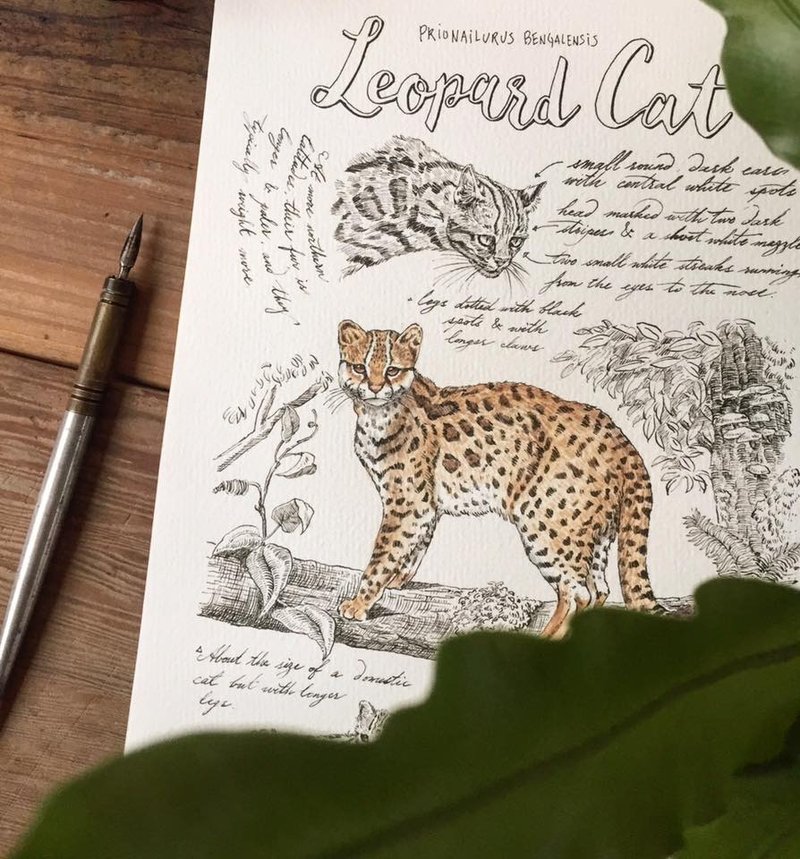 PRIONAILURUS BENGALENSIS
Leopard Cat
small round dark ears
with central white spots
head marked with two dark
stripes & a short white muzzle
two small white streaks running
from the eyes to the nose.
* legs dotted with black
spots & with
longer claws
more northern
latitude, their fur is
longer & paler, and they
typically weight more
* About the size of a domestic
cat but with longer
legs.